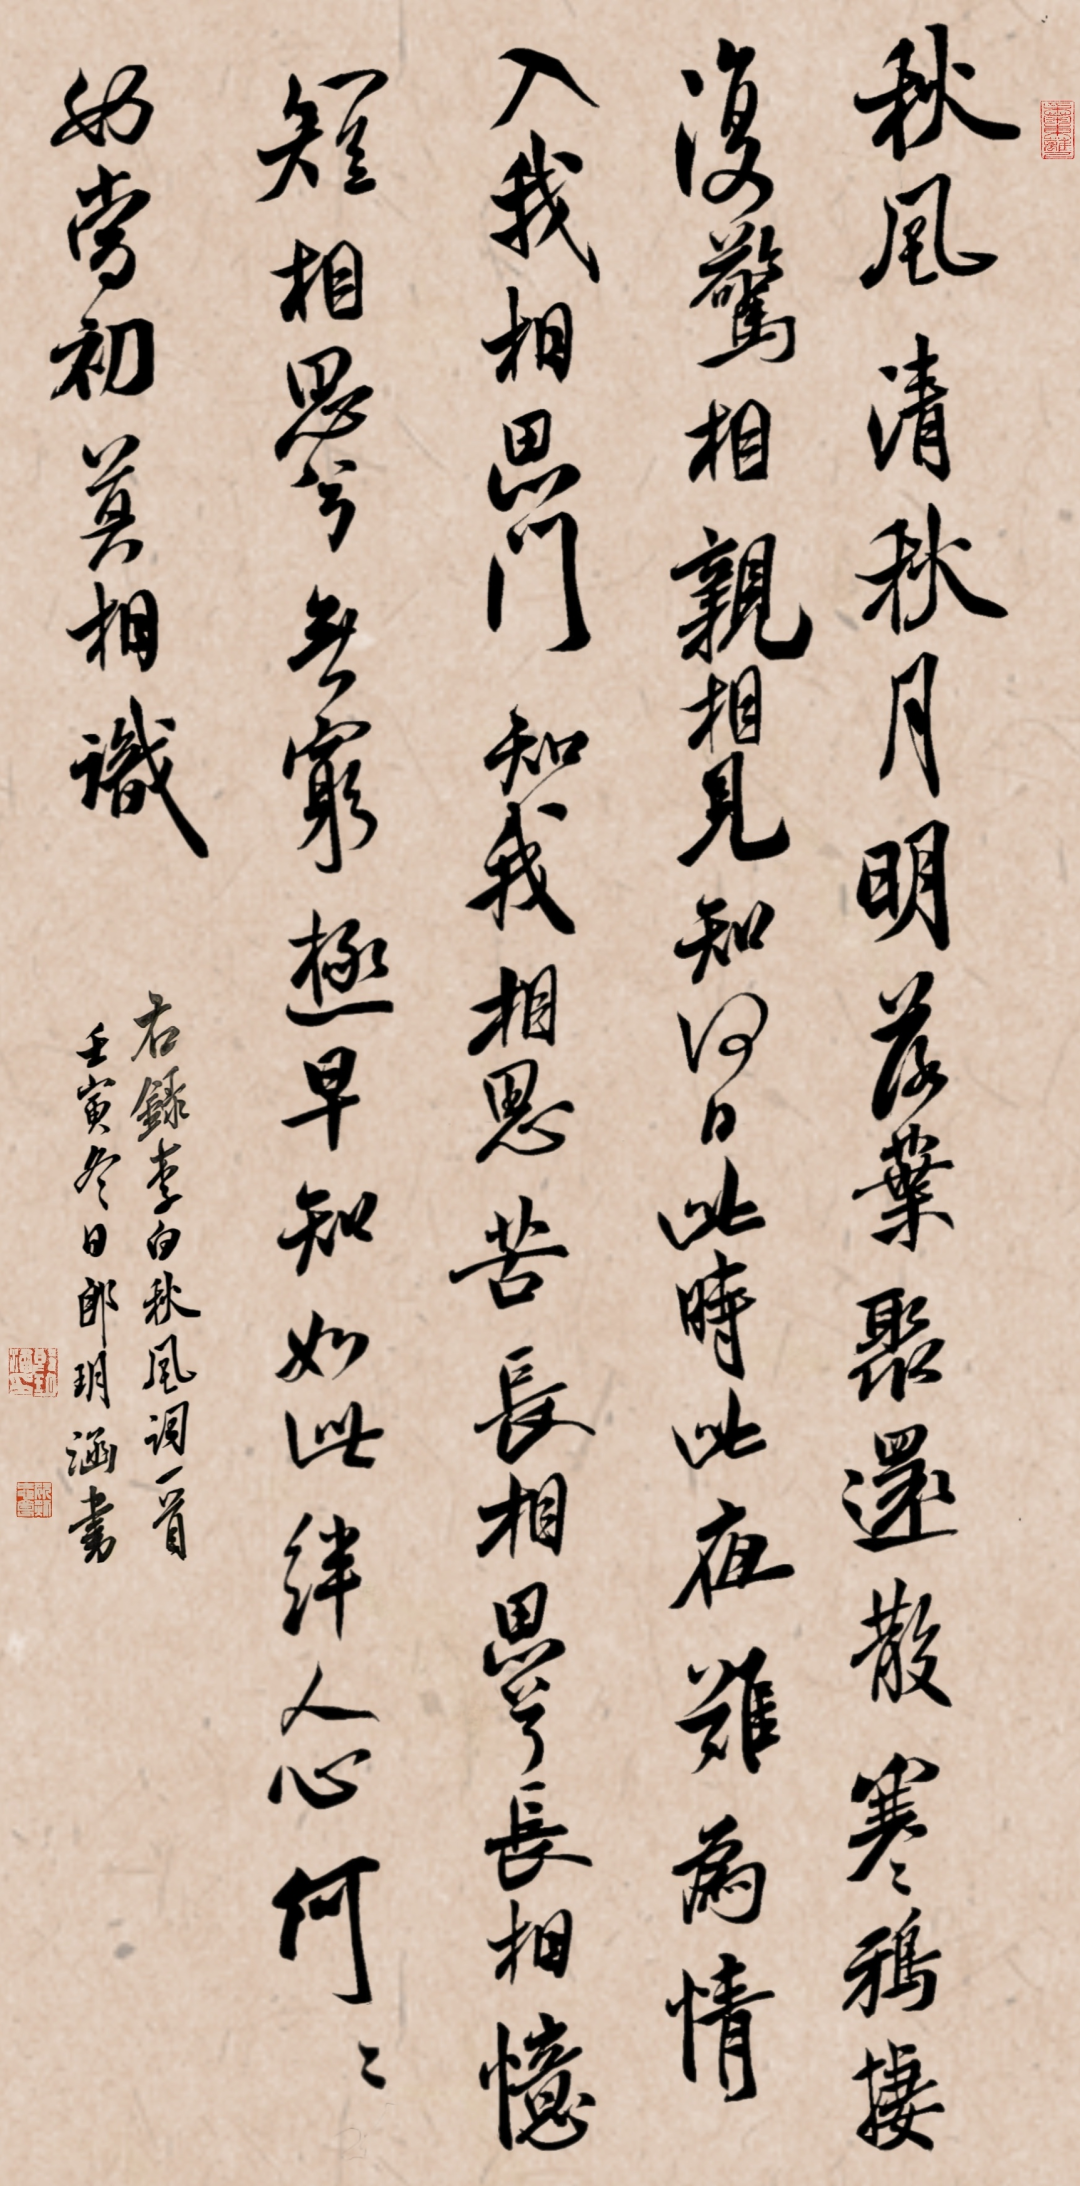 秋風清秋月明落葉聚還散寒鴉棲
復驚相親相見知何日此時此夜難為情
入我相思門知我相思苦長相思兮長相憶
短相思兮無窮極早知如此絆人心何〻
如當初莫相識
右錄李白秋風詞一首
壬寅冬日郎玥涵書